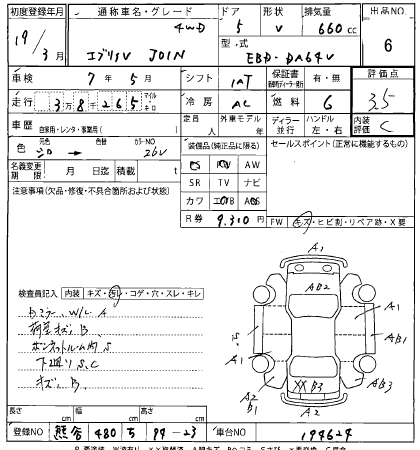 初度登録年月 通称車名・グレード ドア 形状 排気量 出品NO
19/3月 エブリイV JOIN 4WD 5 V 660cc 6
型・式 EBD-DA64V
車検 7年5月 シフト IAT 保証書 有・無 評価点
走行 3 8 265 マイル キロ 冷房 AC 燃料 G 3.5
車歴 自家用・レンタ・事業用( ) 定員 人 外車モデル 年 ディーラー 並行 ハンドル 左・右 内装評価 C
色 元色 シロ → 色 カラーNO 26U 装備品(純正品に限る) セールスポイント(正常に機能するもの)
PS PW AW
名義変更期限 月 日迄 積載 t SR TV ナビ
注意事項(欠品・修復・不具合箇所および状態) カワ エアB ABS
R券 9,310円 FW キズ・ヒビ割・リペア跡・X要
検査員記入 内装 キズ・汚レ・コゲ・穴・スレ・キレ
W/L A
B
ボンネットルーム内 S
下廻り S,C
キズ、B
A1
AB2
A1 A1 AB1
A1 A1
XX B3 AB3
A2 B1 A2
長さ cm 幅 cm 高さ cm
登録NO 熊谷 480 ち 99-23 車台NO 194624